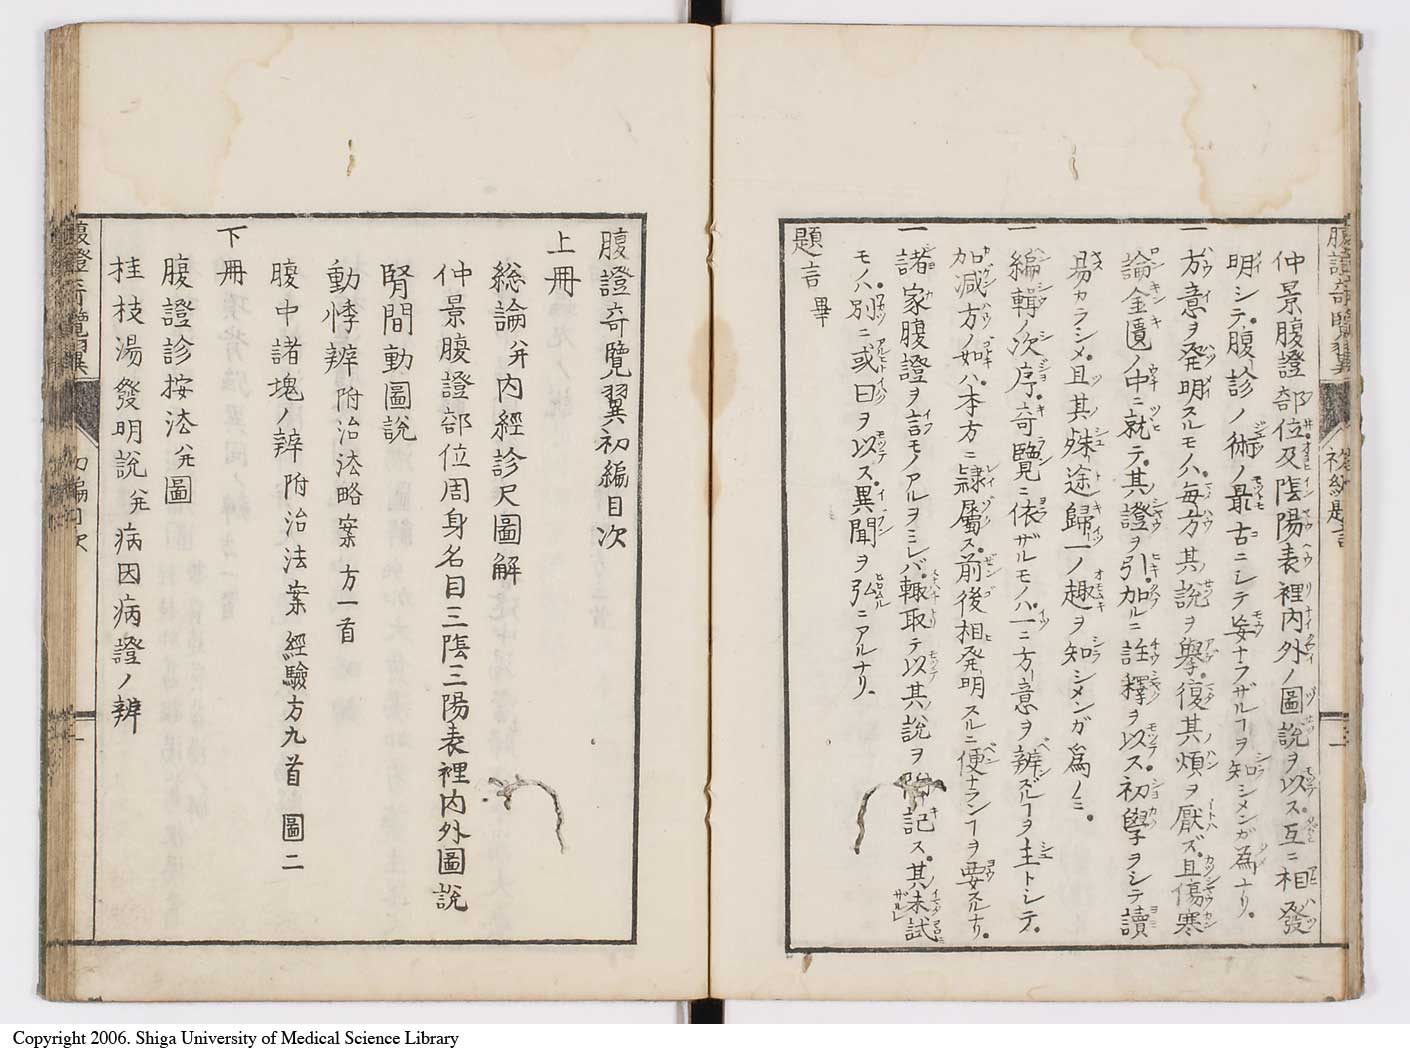 仲景腹證部位及陰陽表裡内外ノ圖説ヲ以ス互ニ相發
明シテ腹診ノ術ノ最古ニシテ妄ナラザルヿヲ知シメンガ為ナリ
一 方意ヲ発明スルモノハ毎方其説ヲ擧復其煩ヲ厭ズ且傷寒
論金匱ノ中ニ就テ其證ヲ引加ルニ註釋ヲ以ス初學ヲシテ讀
易カラシメ且其殊途歸一ノ趣ヲ知シメンガ為ノミ
一 編輯ノ次序奇覽ニ依ザルモノハ一ニ方意ヲ辨ズルヿヲ主トシテ
加減方ノ如ハ本方ニ隷屬ス前後相発明スルニ便ナランヿヲ要スルナリ
一 諸家腹證ヲ言モノアルヲミレバ輙取テ以其説ヲ附記ス其未試ザル
モノハ別ニ或曰ヲ以ス異聞ヲ弘ニアルナリ
題言畢
腹證奇覽翼初編目次
上冊
総論并内經診尺圖解
仲景腹證部位周身名目三陰三陽表裡内外圖説
腎間動圖説
動悸辨 附治法略案方一首
腹中諸塊ノ辨 附治法案 經驗方九首 圖二
下冊
腹證診按法并圖
桂枝湯發明説并病因病證ノ辨
腹證奇覽翼 初編目次
Copyright 2006. Shiga University of Medical Science Library